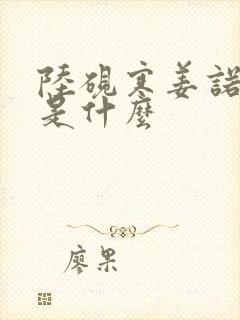 陸硯寒姜諾
是什麼
廖果